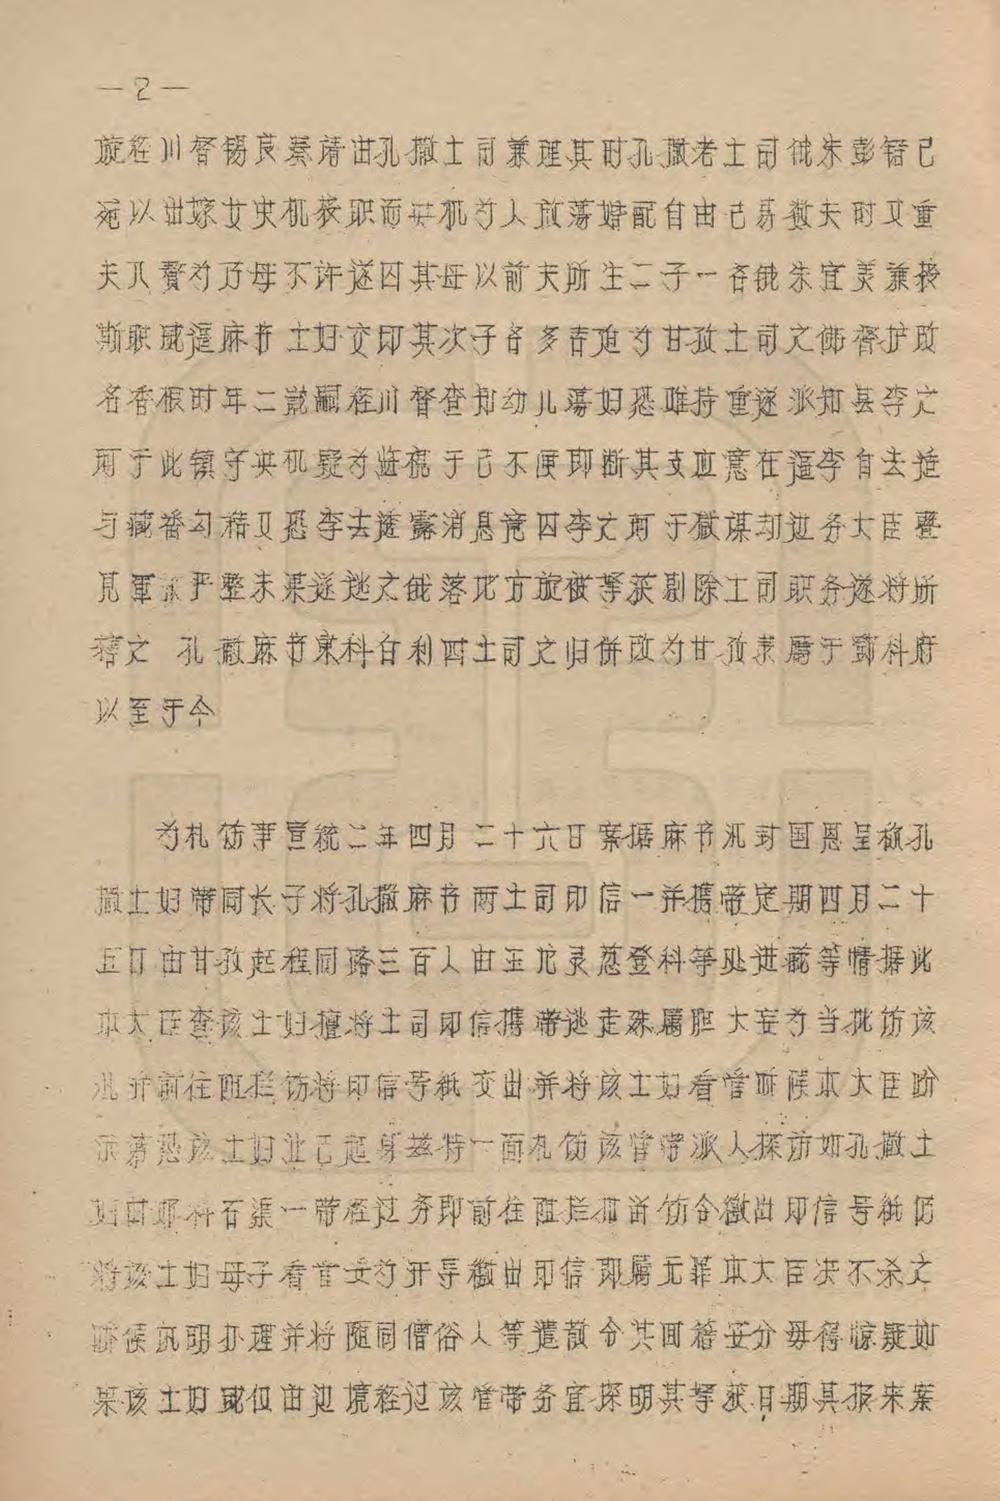 —2—
旋经川督锡良奏请由孔撒土司兼理其时孔撒老土司俄朱彭错已
死以出嫁女央机接职而央机为人放荡婚配自由已易数夫时又重
夫入赘为乃母不许遂因其母以前夫所生二子一名俄朱宜美兼接
斯职威逼麻书土妇交印其次子名多吉迫为甘孜土司之佛耆护改
名香根时年二岁嗣经川督查郑幼儿荡妇恐难持重遂派知县李之
珂于此镇守央机疑为监视于己不便即断其支应意在逼李自去连
与藏番勾稽又恐李去透露消息竟囚李之珂于狱谋劫边务大臣暨
见军 严整未果遂逃之俄落地方旋被拏获剔除土司职务遂将所
辖之 孔撒麻书东科白利四土司之归併改为甘孜隶属于邓科府
以至于今
为札饬事宣统二年四月二十六日案据麻书汛封国恩呈称孔
撒土妇带同长子将孔撒麻书两土司印信一并携带定期四月二十
五日由甘孜起程同路三百人由玉尼灵葱登科等处进藏等情据此
本大臣查该土妇擅将土司印信携带逃走殊属胆大妄为当批饬该
汛弁前往阻拦饬将印信号纸交出并将该土妇看管听候本大臣
示 恐该土妇业已起身兹特一面札饬该管带派人探访如孔撒土
妇由邓科石渠一带经过务即前往阻拦扣留饬令缴出印信号纸仍
将该土妇母子看管 为开导缴出印信即属无罪本大臣决不杀之
听候讯明办理并将随同僧俗人等遣散令其回籍安分毋得惊疑如
果该土妇或仅由边境经过该管带务宜探明其拏获日期具报来案